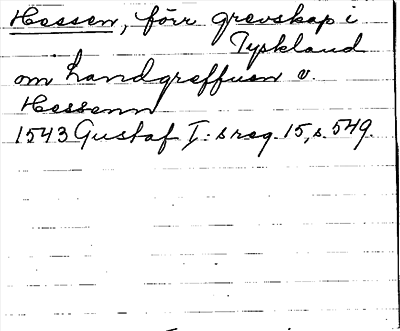 Hessen, förr grevskap i
Tyskland
om Landgreffuen v.
Hessenn
1543 Gustaf I:s reg. 15, s. 549.